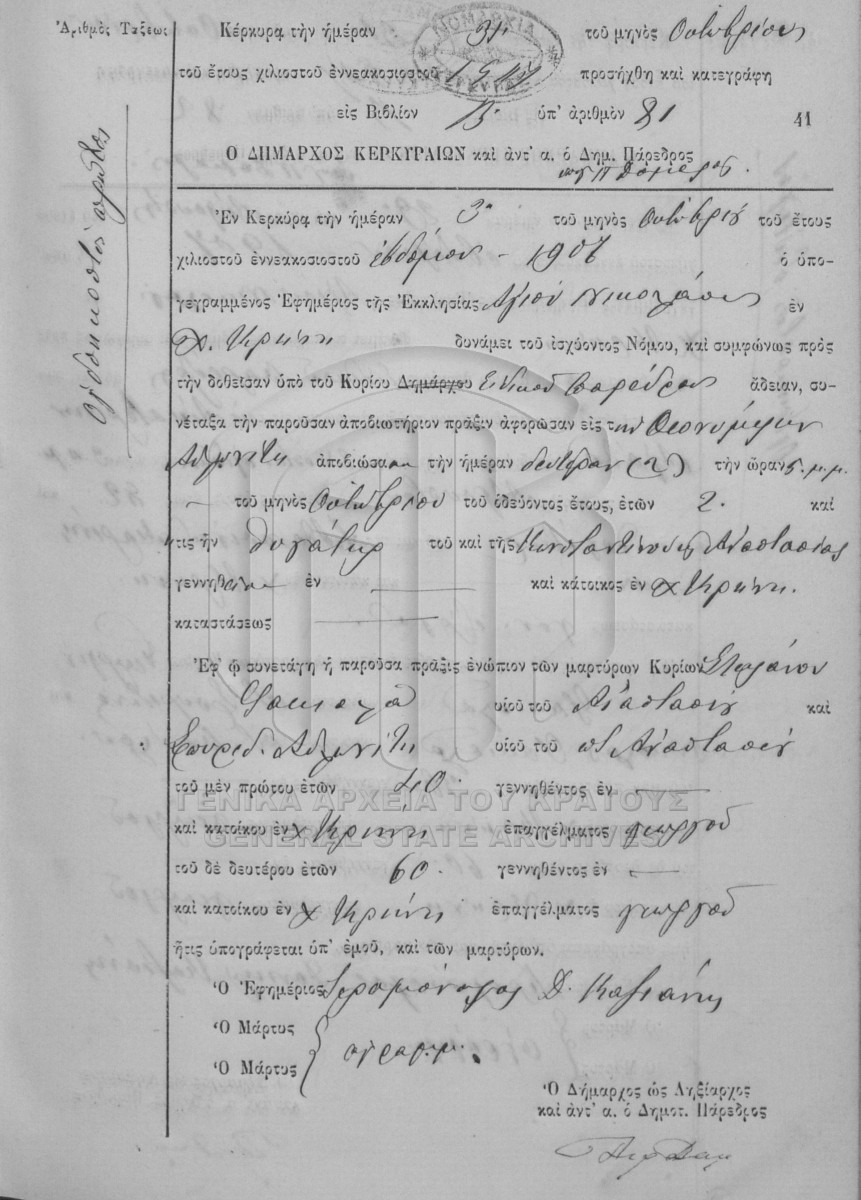 Ἀριθμὸς Τάξεως
Κέρκυρᾳ τὴν ἡμέραν 31 τοῦ μηνὸς Ὀκτωβρίου
τοῦ ἔτους χιλιοστοῦ ἐννεακοσιοστοῦ 1907 προσήχθη καὶ κατεγράφη
εἰς Βιβλίον Β. ὑπ' ἀριθμὸν 81
41
Ο ΔΗΜΑΡΧΟΣ ΚΕΡΚΥΡΑΙΩΝ καὶ ἀντ' α. ὁ Δημ. Πάρεδρος
ὀγδοηκοστὸς πρῶτος
Ἐν Κερκύρᾳ τὴν ἡμέραν 3η τοῦ μηνὸς Ὀκτωβρίου τοῦ ἔτους
χιλιοστοῦ ἐννεακοσιοστοῦ ἑβδόμου - 1907 ὁ ὑπο-
γεγραμμένος Ἐφημέριος τῆς Ἐκκλησίας Ἁγίου Νικολάου ἐν
χ. Κρήνη δυνάμει τοῦ ἰσχύοντος Νόμου, καὶ συμφώνως πρὸς
τὴν δοθεῖσαν ὑπὸ τοῦ Κυρίου Δημάρχου Εἰδικοῦ Παρέδρου ἄδειαν, συ-
νέταξα τὴν παροῦσαν ἀποβιωτήριον πρᾶξιν ἀφορῶσαν εἰς τὴν
ἀποβιώσασαν τὴν ἡμέραν δευτέραν (2) τὴν ὥραν 5. μ.μ.
— τοῦ μηνὸς Ὀκτωβρίου τοῦ ὁδεύοντος ἔτους, ἐτῶν 2. καὶ
ἥτις ἦν θυγάτηρ τοῦ καὶ τῆς Κωνσταντίνου κ Ἀναστασίας
γεννηθεῖσα ἐν — καὶ κάτοικος ἐν χ Κρήνη.
καταστάσεως —
Ἐφ' ᾧ συνετάγη ἡ παροῦσα πρᾶξις ἐνώπιον τῶν μαρτύρων Κυρίων Στυλιανοῦ
υἱοῦ τοῦ Ἀναστασίου καὶ
Σπυρίδ. υἱοῦ τοῦ ποτ Ἀναστασίου
τοῦ μὲν πρώτου ἐτῶν 40. γεννηθέντος ἐν —
καὶ κατοίκου ἐν χ Κρήνη ἐπαγγέλματος γεωργοῦ
τοῦ δὲ δευτέρου ἐτῶν 60. γεννηθέντος ἐν —
καὶ κατοίκου ἐν χ Κρήνη ἐπαγγέλματος γεωργοῦ
ἥτις ὑπογράφεται ὑπ' ἐμοῦ, καὶ τῶν μαρτύρων.
Ὁ Ἐφημέριος Ἱερομόναχος Δ.
Ὁ Μάρτυς
Ὁ Μάρτυς
ἀγράμμ.
Ὁ Δήμαρχος ὡς Ληξίαρχος
καὶ ἀντ' α. ὁ Δημοτ. Πάρεδρος
ΓΕΝΙΚΑ ΑΡΧΕΙΑ ΤΟΥ ΚΡΑΤΟΥΣ
GENERAL STATE ARCHIVES